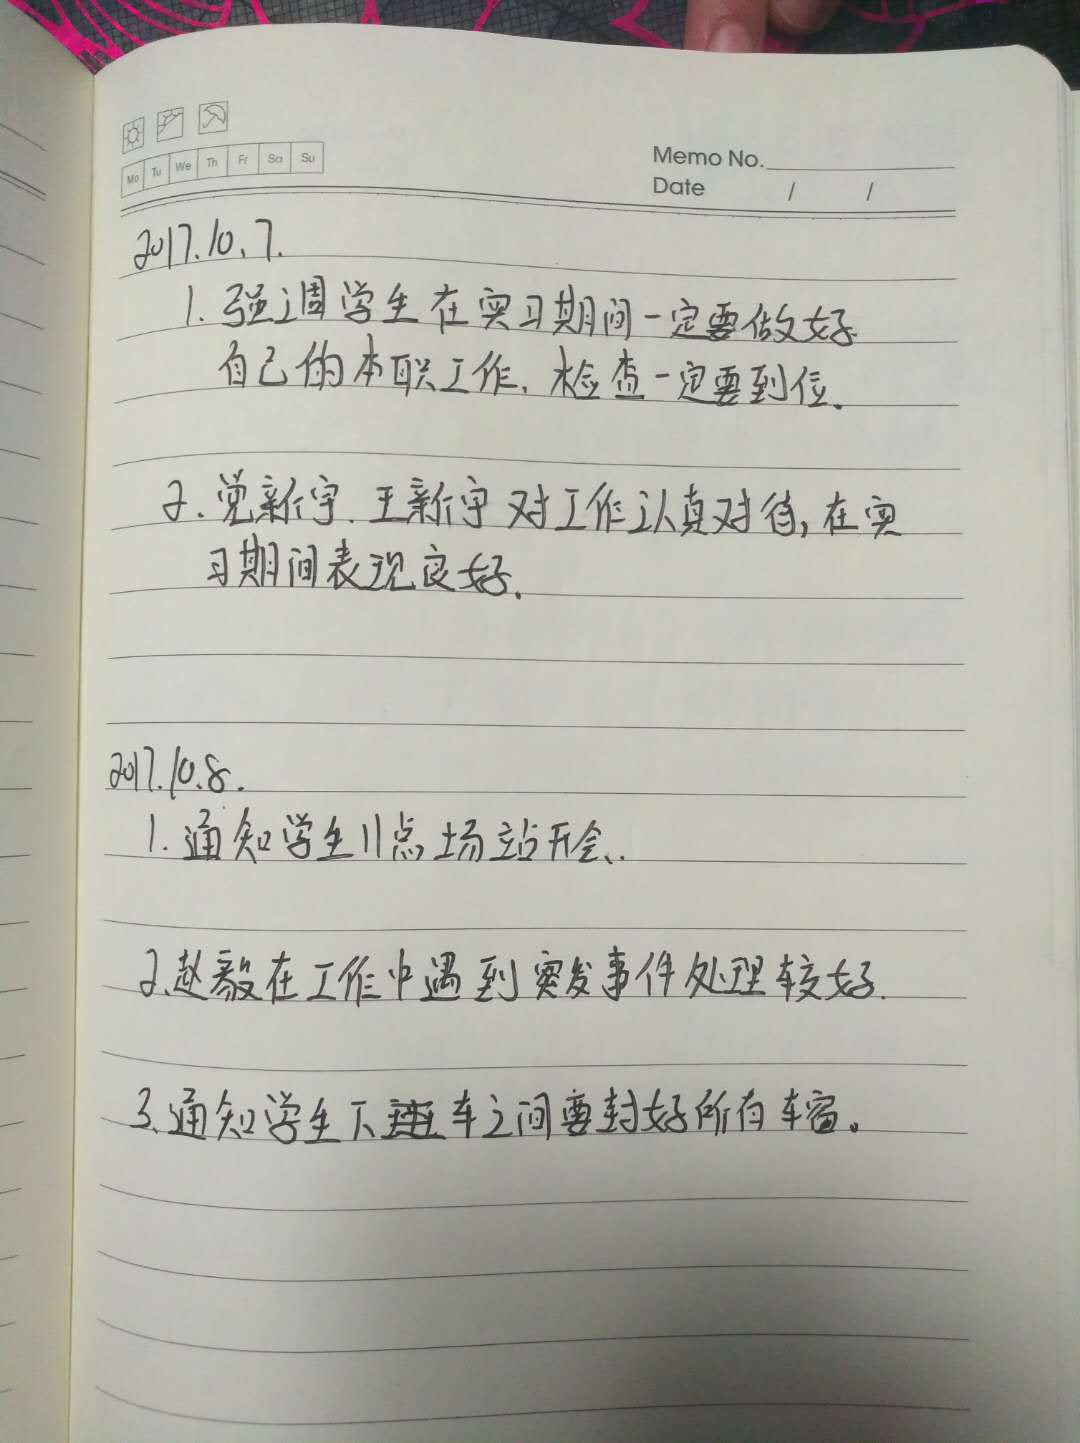 Mo Tu We Th Fr Sa Su
Memo No.
Date / /
2017.10.7.
1. 强调学生在实习期间一定要做好
自己的本职工作, 检查一定要到位.
2. 党新宇. 王新宇对工作认真对待, 在实
习期间表现良好.
2017.10.8.
1. 通知学生11点场站开会.
2.赵毅在工作中遇到突发事件处理较好.
3.通知学生下车之间要封好所有车窗。